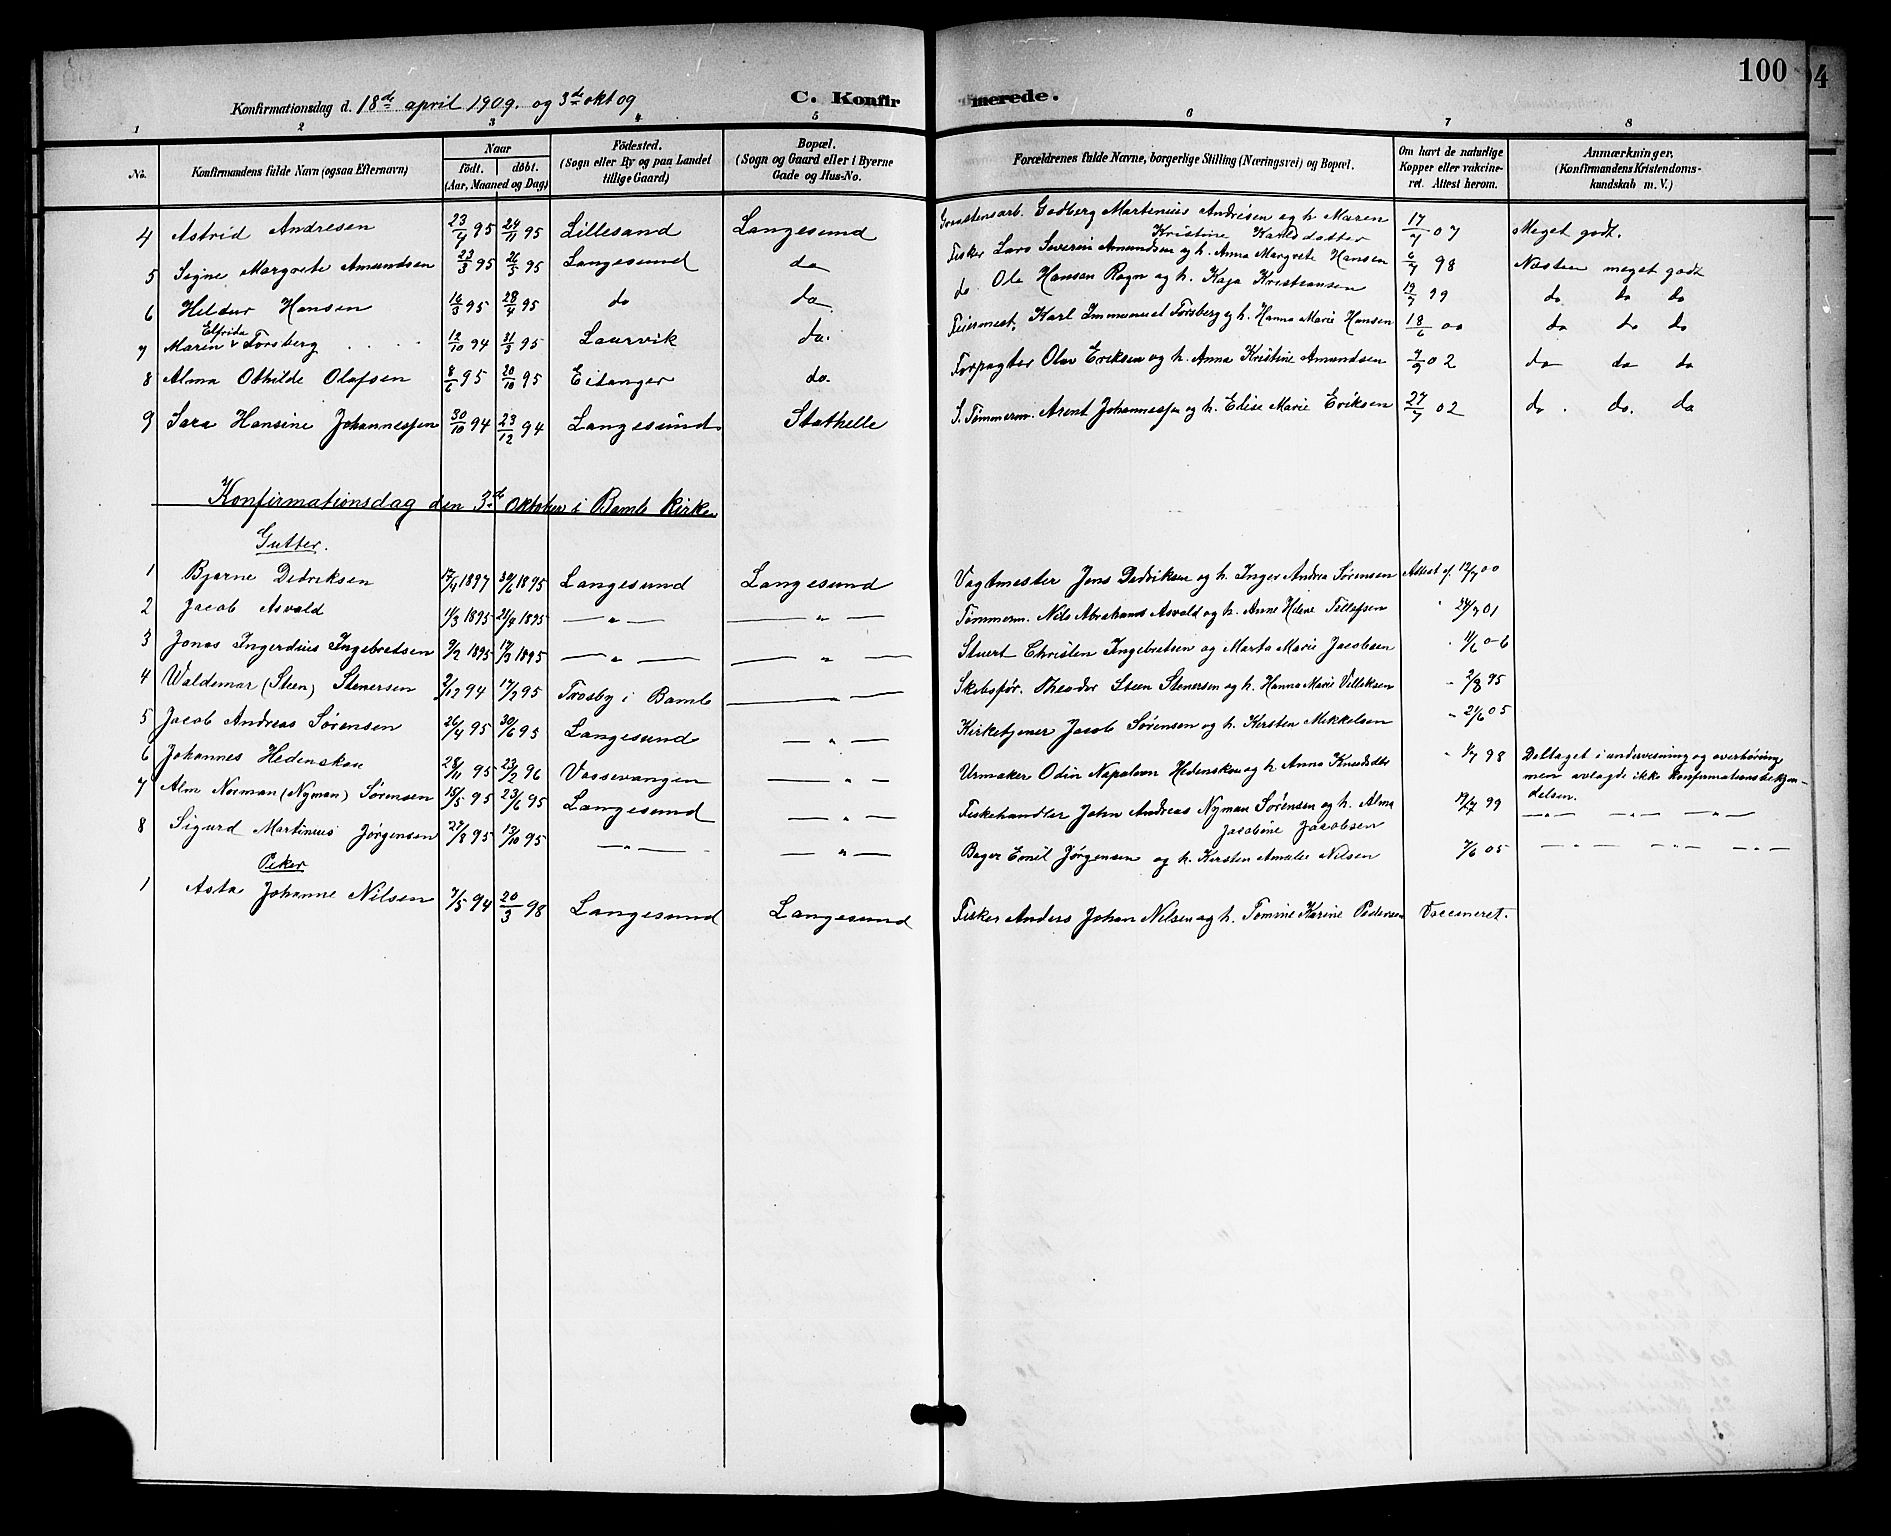 100
Konfirmationsdag d. 18de april 1909. og 3de okt 09 C. Konfirmerede.
1 2 3 4 5 6 7 8
No. Konfirmandens fulde Navn (ogsaa Efternavn) Naar födt. döbt. (Aar, Maaned og Dag) Födested. (Sogn eller By og paa Landet tillige Gaard) Bopæl. (Sogn og Gaard eller i Byerne Gade og Hus-No. Forældrenes fulde Navne, borgerlige Stilling (Næringsvei) og Bopæl. Om havt de naturlige Kopper eller vakcineret. Attest herom. Anmærkninger. (Konfirmandens Kristendomskundskab m. V.)
4 Astrid Andresen 23/9 95 24/11 95 Lillesand Langesund Godberg Martinius Andresen og h. Maren Kristine 17/7 07 Meget godt.
5 Signe Margrete Amundsen 23/3 95 26/5 95 Langesund do Fisker Lars Severin Amundsen og h. Anna Margrete Hansen 6/7 98 Næsten meget godt
6 Hildur Hansen 16/3 95 28/4 95 do do do. Ole Hansen Rogn og h. Kaja Kristiansen 19/7 99 do. do do
7 Maren Elfrida Forsberg 12/10 94 31/3 95 Laurvik do. Feiermest. Karl Immanuel Forsberg og h. Hanna Marie Hansen 18/6 00 do do do
8 Alma Othilde Olafsen 8/6 95 20/10 95 Eidanger do. Forpagter Olav Eriksen og h. Anna Kristine Amundsen 9/9 02 do do do
9 Sara Hansine Johannessen 30/10 94 23/12 94 Langesund Stathelle S. Tømmerm. Arent Johannessen og h. Edise Marie Eriksen 27/7 02 do. do. do
Konfirmationsdag den 3de oktober i Bamle kirke
Gutter.
1 Bjarne Dedriksen 1897 30/6 1895 Langesund Langesund Vagtmester Jens Dedriksen og h. Inger Andrea Sørensen Attest af 12/7 00
2 Jacob Asvald 11/3 1895 21/9 1895 — " — — " — Tømmerm. Nils Abrahams Asvald og h. Anne Helene Tellefsen " 24/7 01
3 Jonas Ingerdius Ingebretsen 9/2 1895 17/3 1895 — " — — " — Stuert Christen Ingebretsen og Marta Marie Jacobsen " 11/6 06
4 Waldemar (Steen) Stenersen 2/12 94 17/2 95 Trosby i Bamle — " — Skibsfør. Theodor Steen Stenersen og h. Hanna Marie Villeksen " 2/8 95
5 Jacob Andreas Sørensen 26/4 95 30/6 95 Langesund — " — Kirketjener Jacob Sørensen og h. Kirsten Mikkelsen " 21/6 05
6 Johannes Hedenskou 28/11 95 23/2 96 Vossevangen — " — Urmaker Odin Napoleon Hedenskou og h. Anna Knudsdtr " 1/7 98 Deltaget i undervisning og overhøring men avlagde ikke konfirmationsbekjendelsen.
7 Alm Norman (Nyman) Sørensen 15/5 95 23/6 95 Langesund — " — Fiskehandler John Andreas Nyman Sørensen og h. Alma Jacobine Jacobsen 19/7 99 — " — — " — — " —
8 Sigurd Martinius Jørgensen 27/8 95 13/10 95 — " — — " — Bager Emil Jørgensen og h. Kirsten Amalie Nilsen 7/6 05 — " — — " — — " —
Piker
1 Asta Johanne Nilsen 7/5 94 20/3 98 Langesund Langesund Fisker Anders Johan Nilsen og h. Tomine Karine Pedersen Vaccineret.